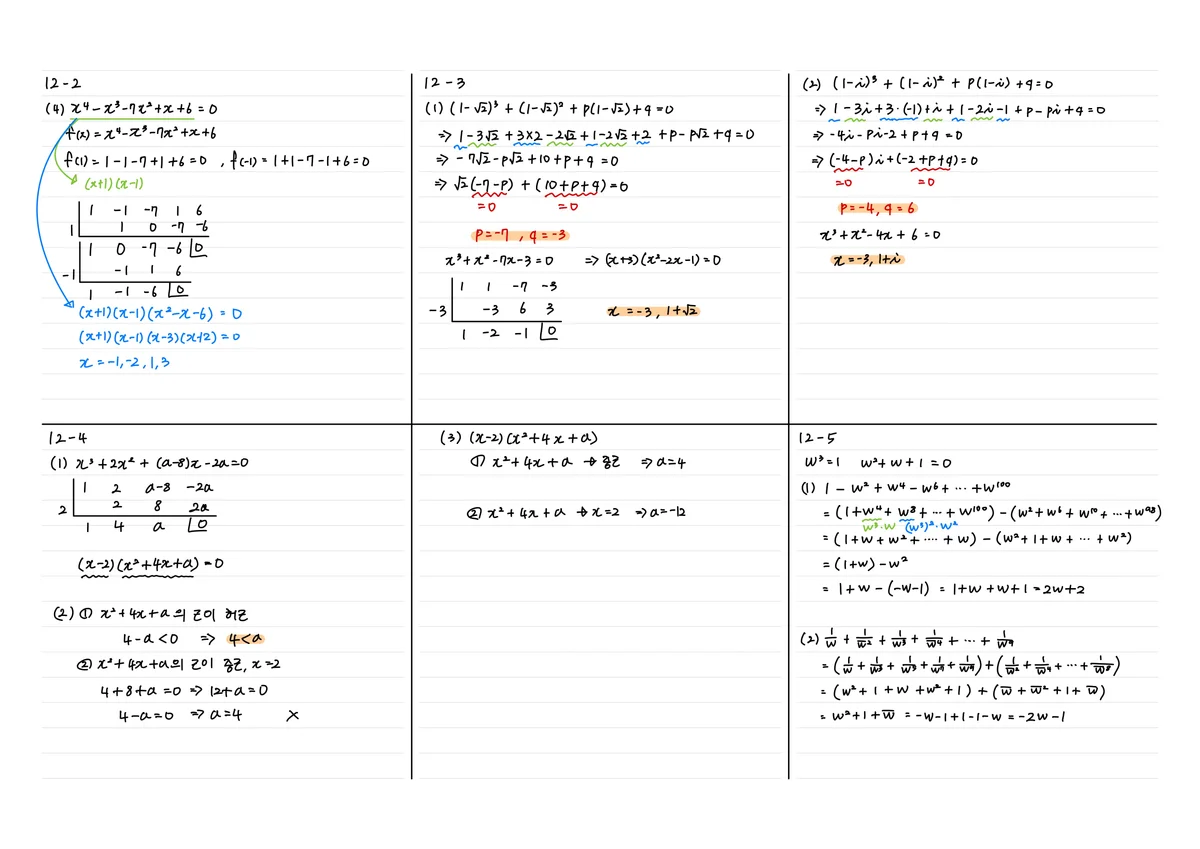 12-2
(4) x⁴-x³-7x²+x+6=0
f(x)=x⁴-x³-7x²+x+6
f(1)=1-1-7+1+6=0 , f(-1)=1+1-7-1+6=0
(x+1)(x-1)
1 -1 -7 1 6
1 1 0 -7 -6
1 0 -7 -6 0
-1 -1 1 6
1 -1 -6 0
(x+1)(x-1)(x²-x-6)=0
(x+1)(x-1)(x-3)(x+2)=0
x=-1,-2,1,3
12-3
(1) (1-√2)³+(1-√2)²+p(1-√2)+q=0
⇒ 1-3√2+3×2-2√2+1-2√2+2+p-p√2+q=0
⇒ -7√2-p√2+10+p+q=0
⇒ √2(-7-p)+(10+p+q)=0
=0 =0
p=-7, q=-3
x³+x²-7x-3=0 ⇒ (x+3)(x²-2x-1)=0
1 1 -7 -3
-3 -3 6 3
1 -2 -1 0
x=-3, 1+√2
(2) (1-i)³+(1-i)²+p(1-i)+q=0
⇒ 1-3i+3·(-1)+i+1-2i-1+p-pi+q=0
⇒ -4i-pi-2+p+q=0
⇒ (-4-p)i+(-2+p+q)=0
=0 =0
p=-4, q=6
x³+x²-4x+6=0
x=-3, 1+i
12-4
(1) x³+2x²+(a-8)x-2a=0
1 2 a-8 -2a
2 2 8 2a
1 4 a 0
(x-2)(x²+4x+a)=0
(2) ① x²+4x+a의 근이 허근
4-a<0 ⇒ 4<a
② x²+4x+a의 근이 중근, x=2
4+8+a=0 ⇒ 12+a=0
4-a=0 ⇒ a=4 ×
(3) (x-2)(x²+4x+a)
① x²+4x+a → 중근 ⇒ a=4
② x²+4x+a → x=2 ⇒ a=-12
12-5
w³=1 w²+w+1=0
(1) 1-w²+w⁴-w⁶+⋯+w¹⁰⁰
=(1+w⁴+w⁸+⋯+w¹⁰⁰)-(w²+w⁶+w¹⁰+⋯+w⁹⁸)
w³·w (w³)²·w²
=(1+w+w²+⋯+w)-(w²+1+w+⋯+w²)
=(1+w)-w²
=1+w-(-w-1)=1+w+w+1=2w+2
(2) 1/w+1/w²+1/w³+1/w⁴+⋯+1/w⁹
=(1/w+1/w³+1/w⁵+1/w⁷+1/w⁹)+(1/w²+1/w⁴+⋯+1/w⁸)
=(w²+1+w+w²+1)+(w̅+w̅²+1+w̅)
=w²+1+w̅=-w-1+1-1-w=-2w-1